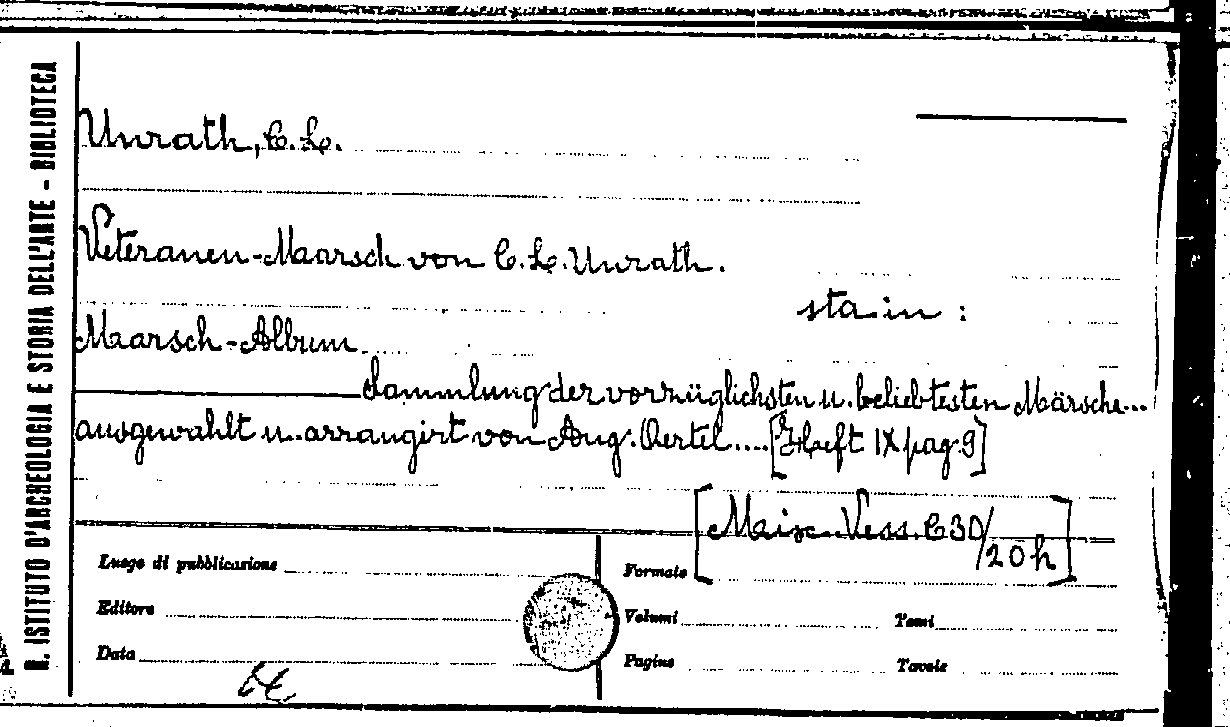 R. ISTITUTO D'ARCHEOLOGIA E STORIA DELL'ARTE - BIBLIOTECA
Unrath, C. L.
Veteranen-Maarsch von C. L. Unrath.
sta in :
Maarsch-Album
Sammlung der vorzüglichsten u. beliebtesten Märsche...
ausgewahlt u. arrangirt von Aug. Oertel .... [Heft IX pag. 9]
[Misc. Vess. C 30/20 h]
Luogo di pubblicazione
Formato
Editore
Volumi
Tomi
Data
Pagine
Tavole